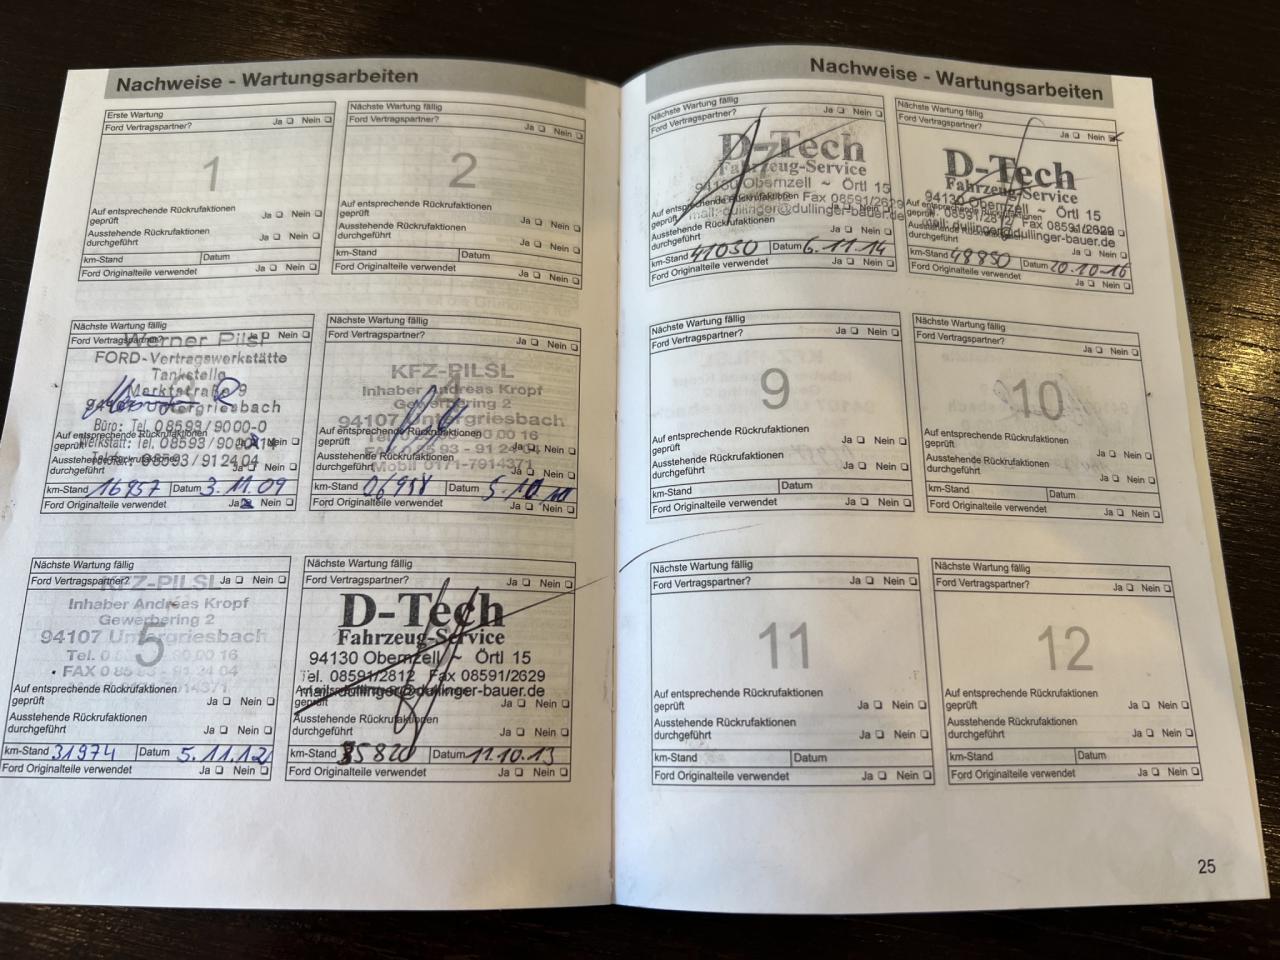 Nachweise - Wartungsarbeiten
Erste Wartung
Ford Vertragspartner? Ja Nein
1
Auf entsprechende Rückrufaktionen
geprüft Ja Nein
Ausstehende Rückrufaktionen
durchgeführt Ja Nein
km-Stand Datum
Ford Originalteile verwendet Ja Nein
Nächste Wartung fällig
Ford Vertragspartner? Ja Nein
2
Auf entsprechende Rückrufaktionen
geprüft Ja Nein
Ausstehende Rückrufaktionen
durchgeführt Ja Nein
km-Stand Datum
Ford Originalteile verwendet Ja Nein
Nächste Wartung fällig
Ford Vertragspartner? Ja Nein
Werner Pilsl
FORD-Vertragswerkstätte
Tankstelle
Marktstraße 9
Büro: Tel. 08593/9000-0
Auf entsprechende Rückrufaktionen
geprüft Ja Nein
Ausstehende Rückrufaktionen
durchgeführt Ja
km-Stand 16957 Datum 3.11.09
Ford Originalteile verwendet Ja Nein
Nächste Wartung fällig
Ford Vertragspartner? Ja Nein
4
KFZ-PILSL
Inhaber Andreas Kropf
Gewerbering 2
94107 Untergriesbach
Auf entsprechende Rückrufaktionen
geprüft Ja Nein
Ausstehende Rückrufaktionen
durchgeführt Ja Nein
Mobil 0171-7914371
km-Stand Datum 5.10.10
Ford Originalteile verwendet Ja Nein
Nächste Wartung fällig
Ford Vertragspartner? Ja Nein
KFZ-PILSL
Inhaber Andreas Kropf
Gewerbering 2
94107 Untergriesbach
5
Auf entsprechende Rückrufaktionen
geprüft Ja Nein
Ausstehende Rückrufaktionen
durchgeführt Ja Nein
km-Stand 31974 Datum 5.11.12
Ford Originalteile verwendet Ja Nein
Nächste Wartung fällig
Ford Vertragspartner? Ja Nein
D-Tech
Fahrzeug-Service
94130 Obernzell ~ Örtl 15
Tel. 08591/2812 Fax 08591/2629
mail: dullinger@dullinger-bauer.de
geprüft Ja Nein
Ausstehende Rückrufaktionen
durchgeführt Ja Nein
km-Stand 35820 Datum 11.10.13
Ford Originalteile verwendet Ja Nein
Nachweise - Wartungsarbeiten
Nächste Wartung fällig
Ford Vertragspartner? Ja Nein
D-Tech
Fahrzeug-Service
94130 Obernzell ~ Örtl 15
Fax 08591/2629
mail: dullinger@dullinger-bauer.de
Ausstehende Rückrufaktionen
durchgeführt Ja Nein
km-Stand 41050 Datum 6.11.14
Ford Originalteile verwendet Ja Nein
Nächste Wartung fällig
Ford Vertragspartner? Ja Nein
D-Tech
Fahrzeug-Service
94130 Obernzell ~ Örtl 15
Fax 08591/2629
mail: dullinger@dullinger-bauer.de
durchgeführt Ja Nein
km-Stand 48850 Datum 20.10.16
Ford Originalteile verwendet Ja Nein
Nächste Wartung fällig
Ford Vertragspartner? Ja Nein
9
Auf entsprechende Rückrufaktionen
geprüft Ja Nein
Ausstehende Rückrufaktionen
durchgeführt Ja Nein
km-Stand Datum
Ford Originalteile verwendet Ja Nein
Nächste Wartung fällig
Ford Vertragspartner? Ja Nein
10
Auf entsprechende Rückrufaktionen
geprüft Ja Nein
Ausstehende Rückrufaktionen
durchgeführt Ja Nein
km-Stand Datum
Ford Originalteile verwendet Ja Nein
Nächste Wartung fällig
Ford Vertragspartner? Ja Nein
11
Auf entsprechende Rückrufaktionen
geprüft Ja Nein
Ausstehende Rückrufaktionen
durchgeführt Ja Nein
km-Stand Datum
Ford Originalteile verwendet Ja Nein
Nächste Wartung fällig
Ford Vertragspartner? Ja Nein
12
Auf entsprechende Rückrufaktionen
geprüft Ja Nein
Ausstehende Rückrufaktionen
durchgeführt Ja Nein
km-Stand Datum
Ford Originalteile verwendet Ja Nein
25